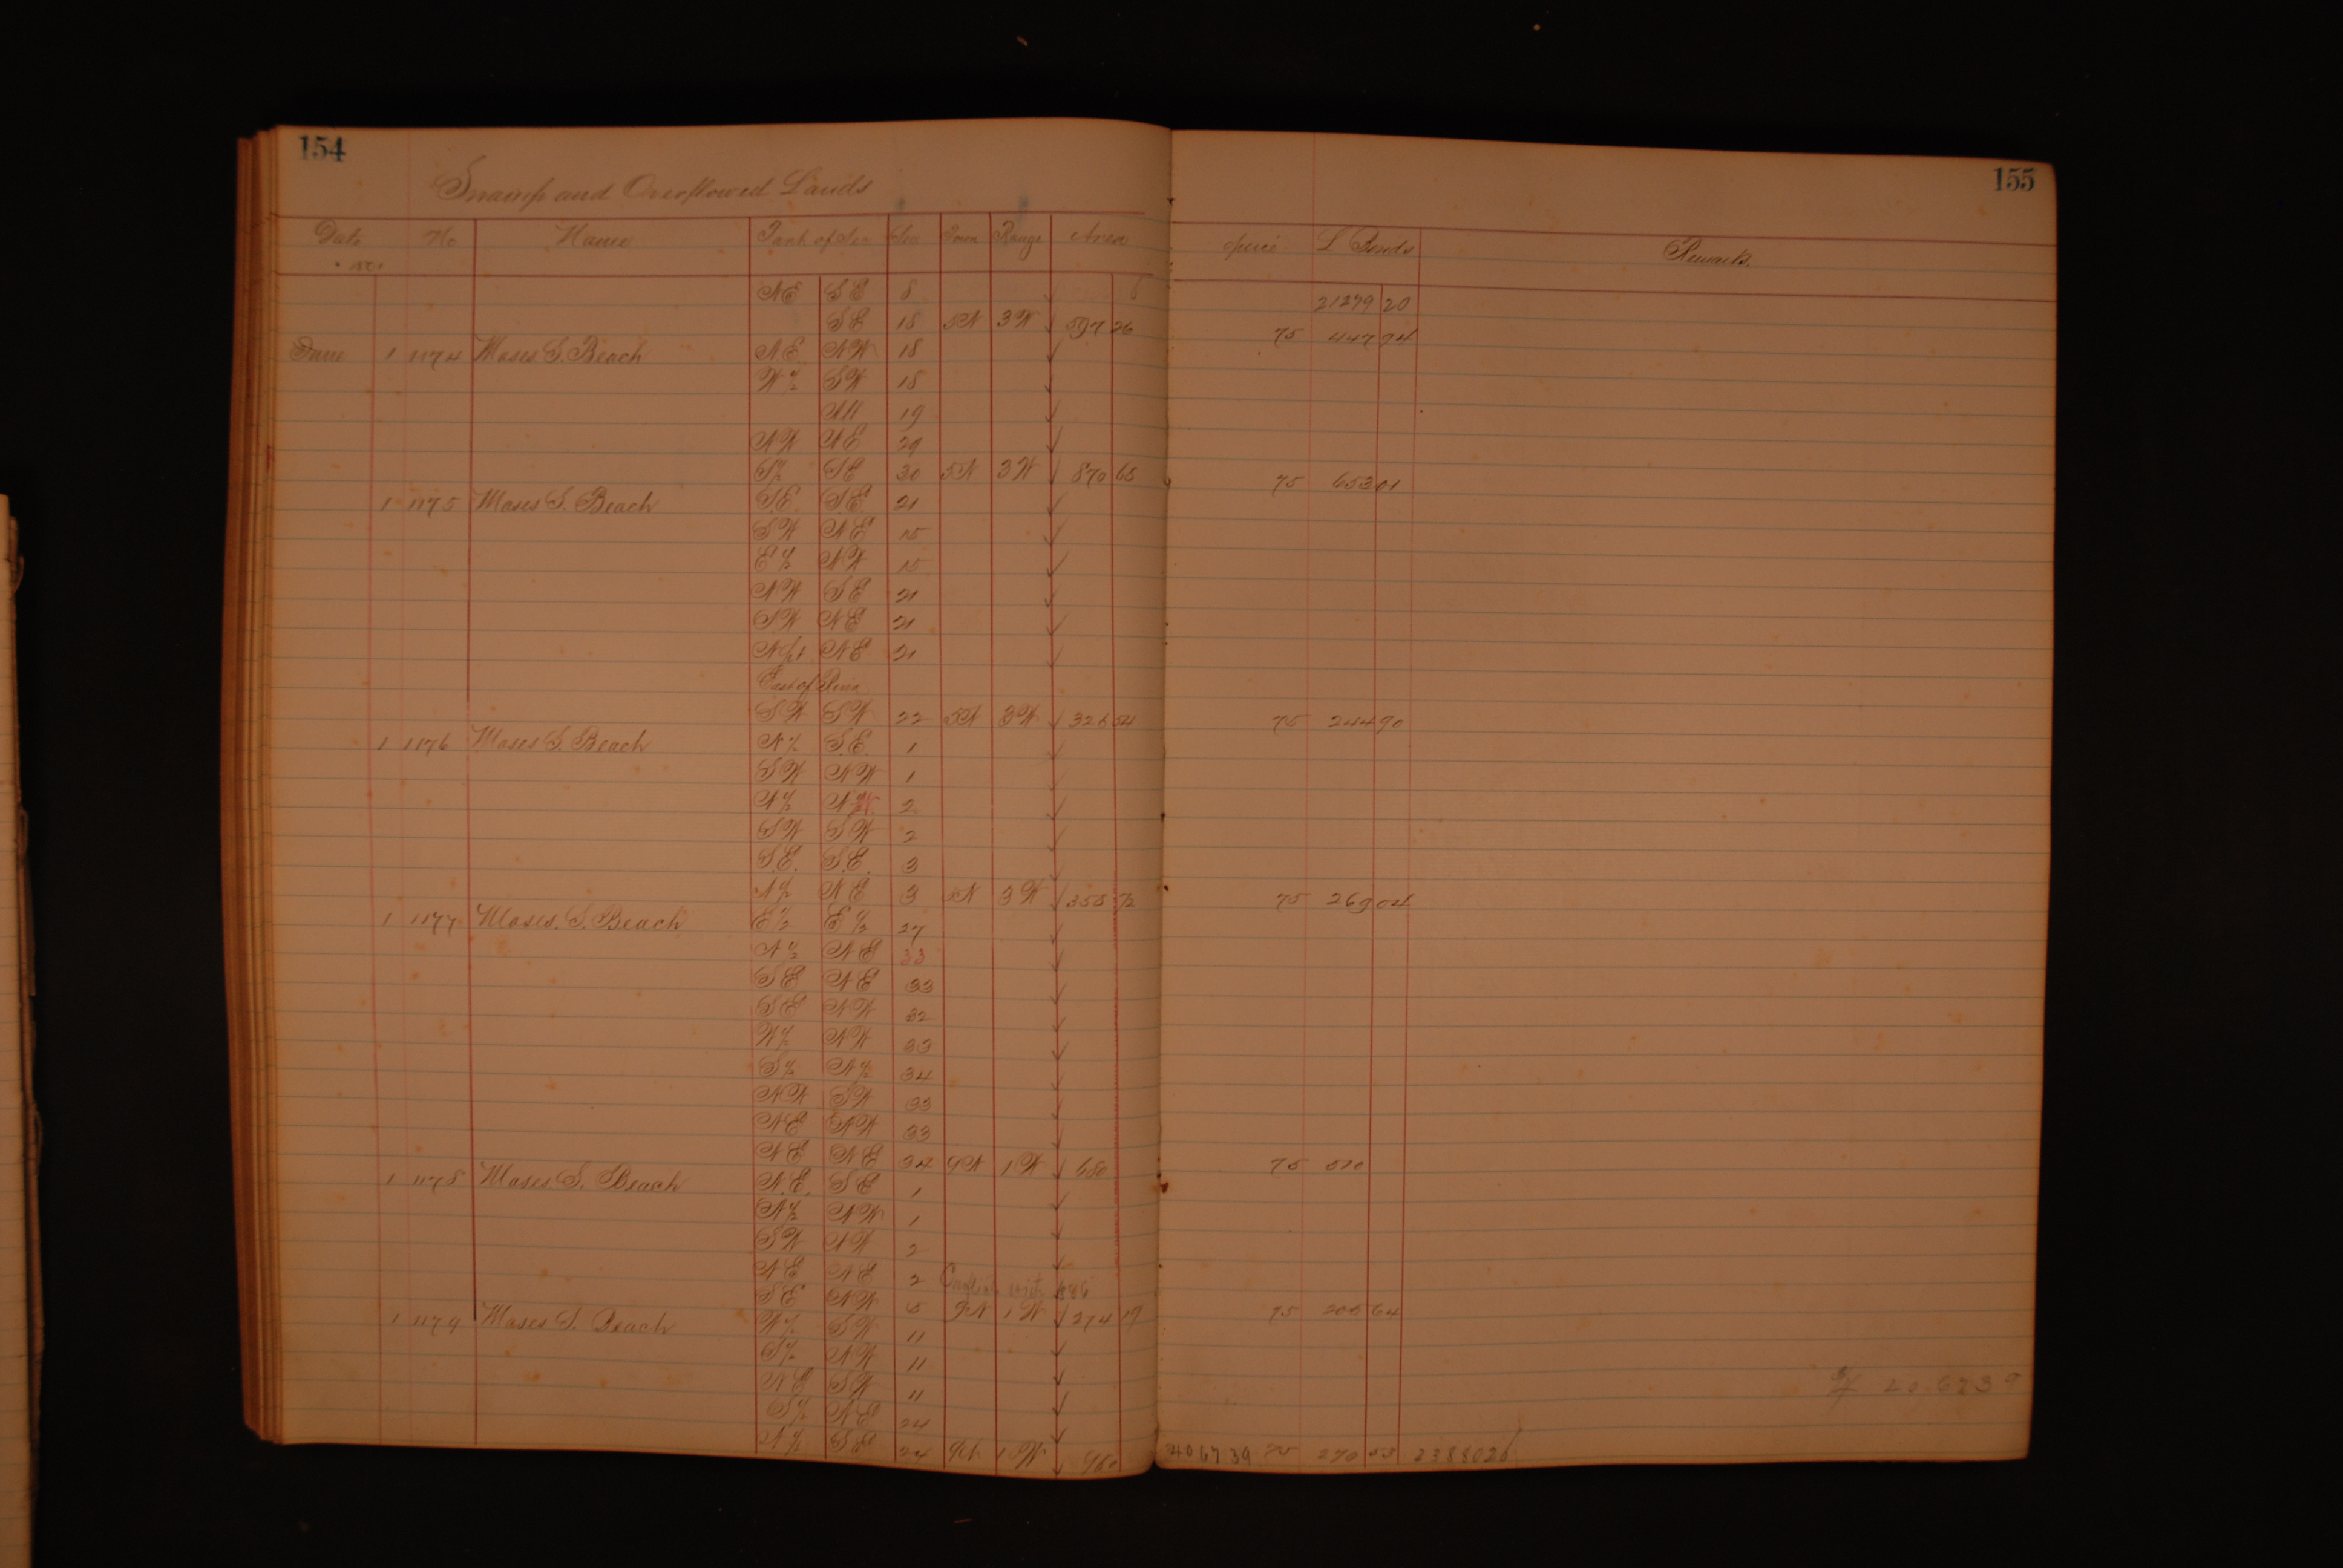 154
155
Swamp and Overflowed Lands
Date No Name Part of Sec Sec Town Range Area Price L Bonds Remarks.
NE SE 8 21279 20
SE 18 5N 3W 597 26 75 447 94
June 1 1174 Moses S. Beach NE NW 18
W½ SW 18
All 19
NW NE 29
S½ SE 30 5N 3W 870 68 75 653 01
1 1175 Moses S. Beach S.E. S.E. 21
SW NE 15
E½ NW 15
NW SE 21
SW NE 21
N pt NE 21
East of River
SW SW 22 5N 3W 326 54 75 244 90
1 1176 Moses S. Beach N½ S.E. 1
SW NW 1
N½ N 2
SW SW 2
S.E. S.E. 3
N½ NE 3 5N 3W 358 72 75 269 04
1 1177 Moses. S. Beach E½ E½ 27
N½ NE 33
SE NE 33
SE NW 32
W½ NW 33
S½ N½ 34
NW SW 33
NE NW 33
NE NE 34 9N 1W 680 75 510
1 1178 Moses. S. Beach N.E. SE 1
N½ NW 1
SW NW 2
NE NE 2 with
SE NW 5 9N 1W 274 19 75 205 64
1 1179 Moses S. Beach W½ SW 11
S½ NW 11
NE SW 11
S½ NE 24
N½ SE 24 1W 4067 39 75 270 53